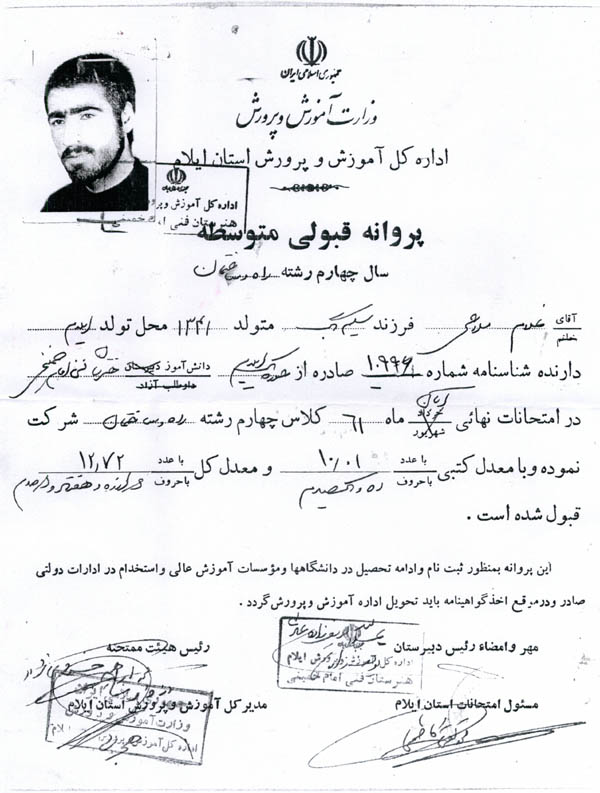 جمهوری اسلامی ایران
وزارت آموزش و پرورش
اداره کل آموزش و پرورش استان ایلام
اداره کل آموزش و پرورش
هنرستان فنی امام خمینی
پروانه قبولی متوسطه
سال چهارم رشته راه و ساختمان
آقای خانم غلام فرزند متولد ۱۳۴۱ محل تولد ایلام
دارنده شناسنامه شماره ۱۰۹۹۶ صادره از دانش‌آموز دبیرستان داوطلب آزاد هنرستان فنی امام خمینی
در امتحانات نهائی خرداد شهریور ماه ۶۱ کلاس چهارم رشته راه و ساختمان شرکت
نموده و با معدل کتبی با عدد ۱۰/۰۱ باحروف ده و یکصدم و معدل کل با عدد ۱۲/۷۲ باحروف دوازده و هفتاد و دو صدم
قبول شده است .
این پروانه بمنظور ثبت نام وادامه تحصیل در دانشگاهها ومؤسسات آموزش عالی واستخدام در ادارات دولتی
صادر ودرموقع اخذ گواهینامه باید تحویل اداره آموزش و پرورش گردد .
مهر وامضاء رئیس دبیرستان
رئیس هیئت ممتحنه
اداره کل آموزش و پرورش ایلام
هنرستان فنی امام خمینی
مسئول امتحانات استان ایلام
مدیر کل آموزش و پرورش استان ایلام
وزارت آموزش و پرورش
اداره کل آموزش و پرورش